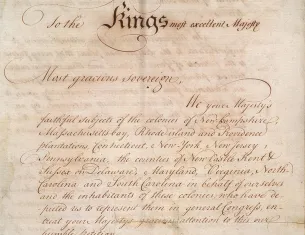 To the Kings most excellent Majesty
Most gracious sovereign,
We your Majesty's
faithful subjects of the colonies of New-hampshire,
Massachusetts-bay, Rhode-island and Providence
plantations, Connecticut, New-York, New Jersey,
Pennsylvania, the counties of New Castle Kent &
Sussex on Delaware, Maryland, Virginia, North
Carolina and South Carolina in behalf of ourselves
and the inhabitants of these colonies who have de-
puted us to represent them in general Congress, en-
treat your Majesty's gracious attention to this our
humble petition